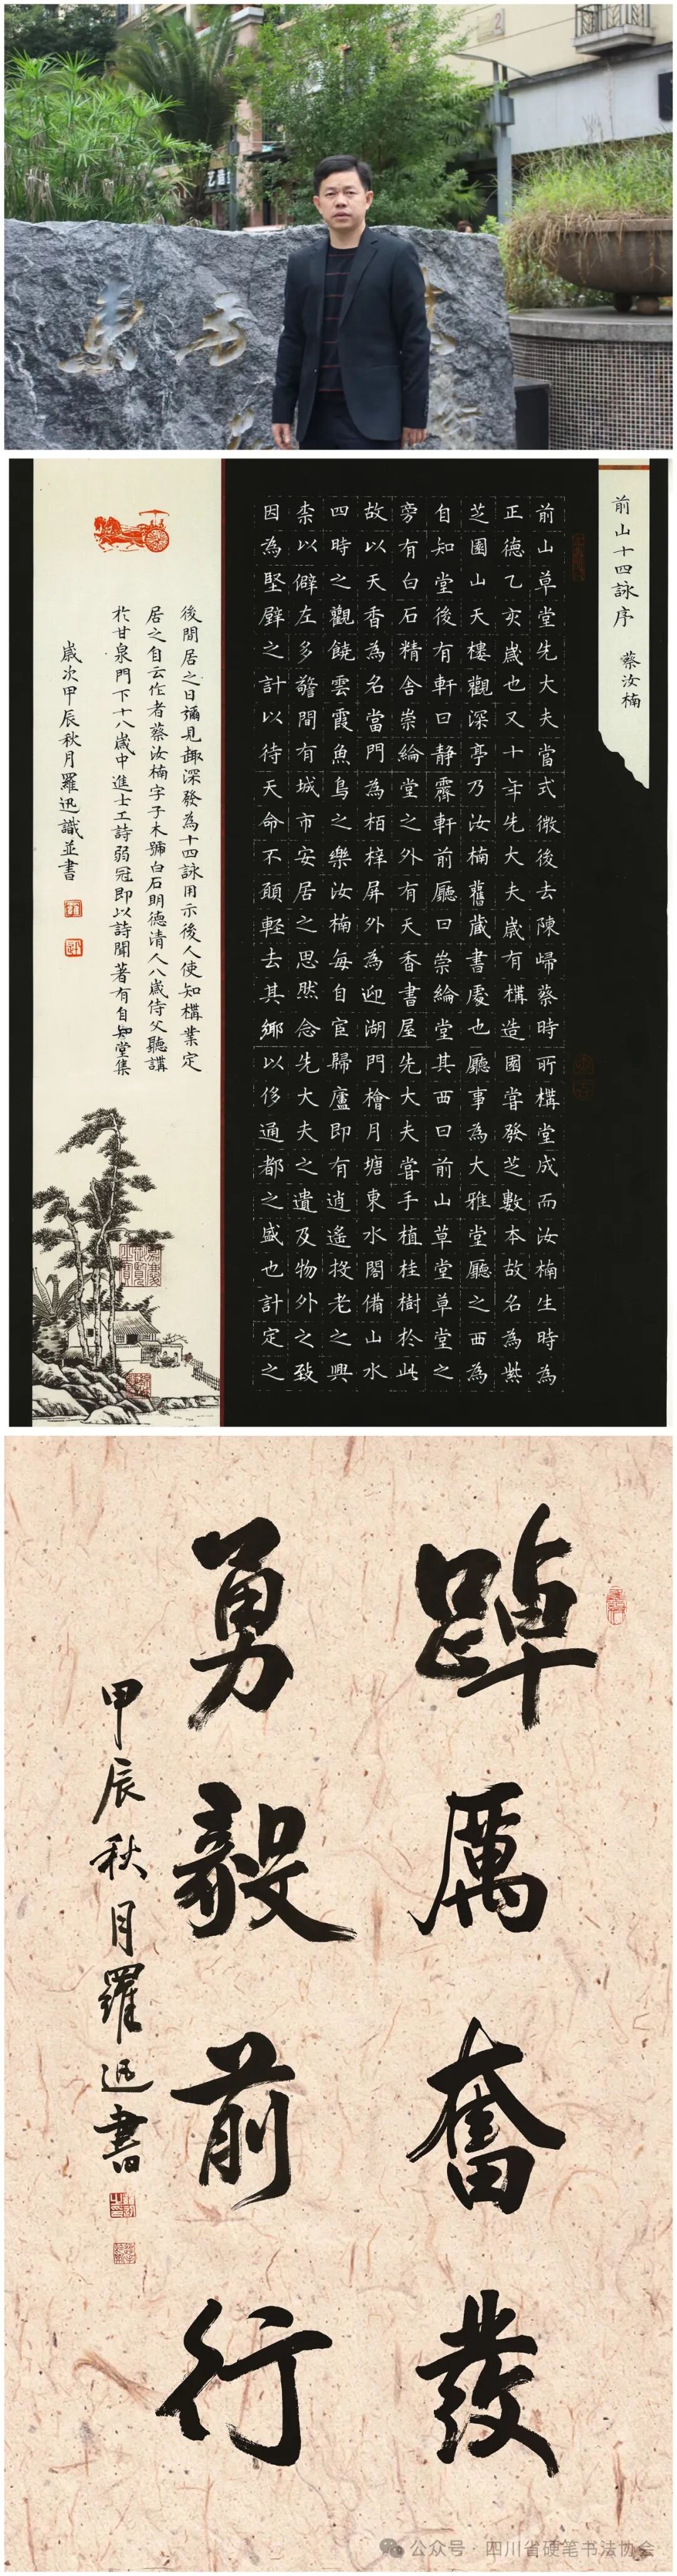 前山十四詠序 蔡汝楠
前山草堂先大夫當式微後去陳歸蔡時所構堂成而汝楠生時為
正德乙亥歲也又十年先大夫歲有構造園嘗發芝數本故名為紫
芝園山天樓觀深亭乃汝楠舊藏書處也廳事為大雅堂廳之西為
自知堂後有軒曰靜霽軒前廳曰崇綸堂其西曰前山草堂草堂之
旁有白石精舍崇綸堂之外有天香書屋先大夫嘗手植桂樹於此
故以天香為名當門為栢梓屏外為迎湖門檜月塘東水閣備山水
四時之觀饒雲霞魚鳥之樂汝楠每自宦歸廬即有逍遙投老之興
柰以僻左多警間有城市安居之思然念先大夫之遺及物外之致
因為堅辟之計以待天命不願輕去其鄉以侈通都之盛也計定之
後閒居之日彌見趣深發為十四詠用示後人使知構業定
居之自云作者蔡汝楠字子木號白石明德清人八歲侍父聽講
於甘泉門下十八歲中進士工詩弱冠即以詩聞著有自知堂集
歲次甲辰秋月羅迅識並書
踔厲奮發
勇毅前行
甲辰秋月羅迅書
公众号·四川省硬笔书法协会